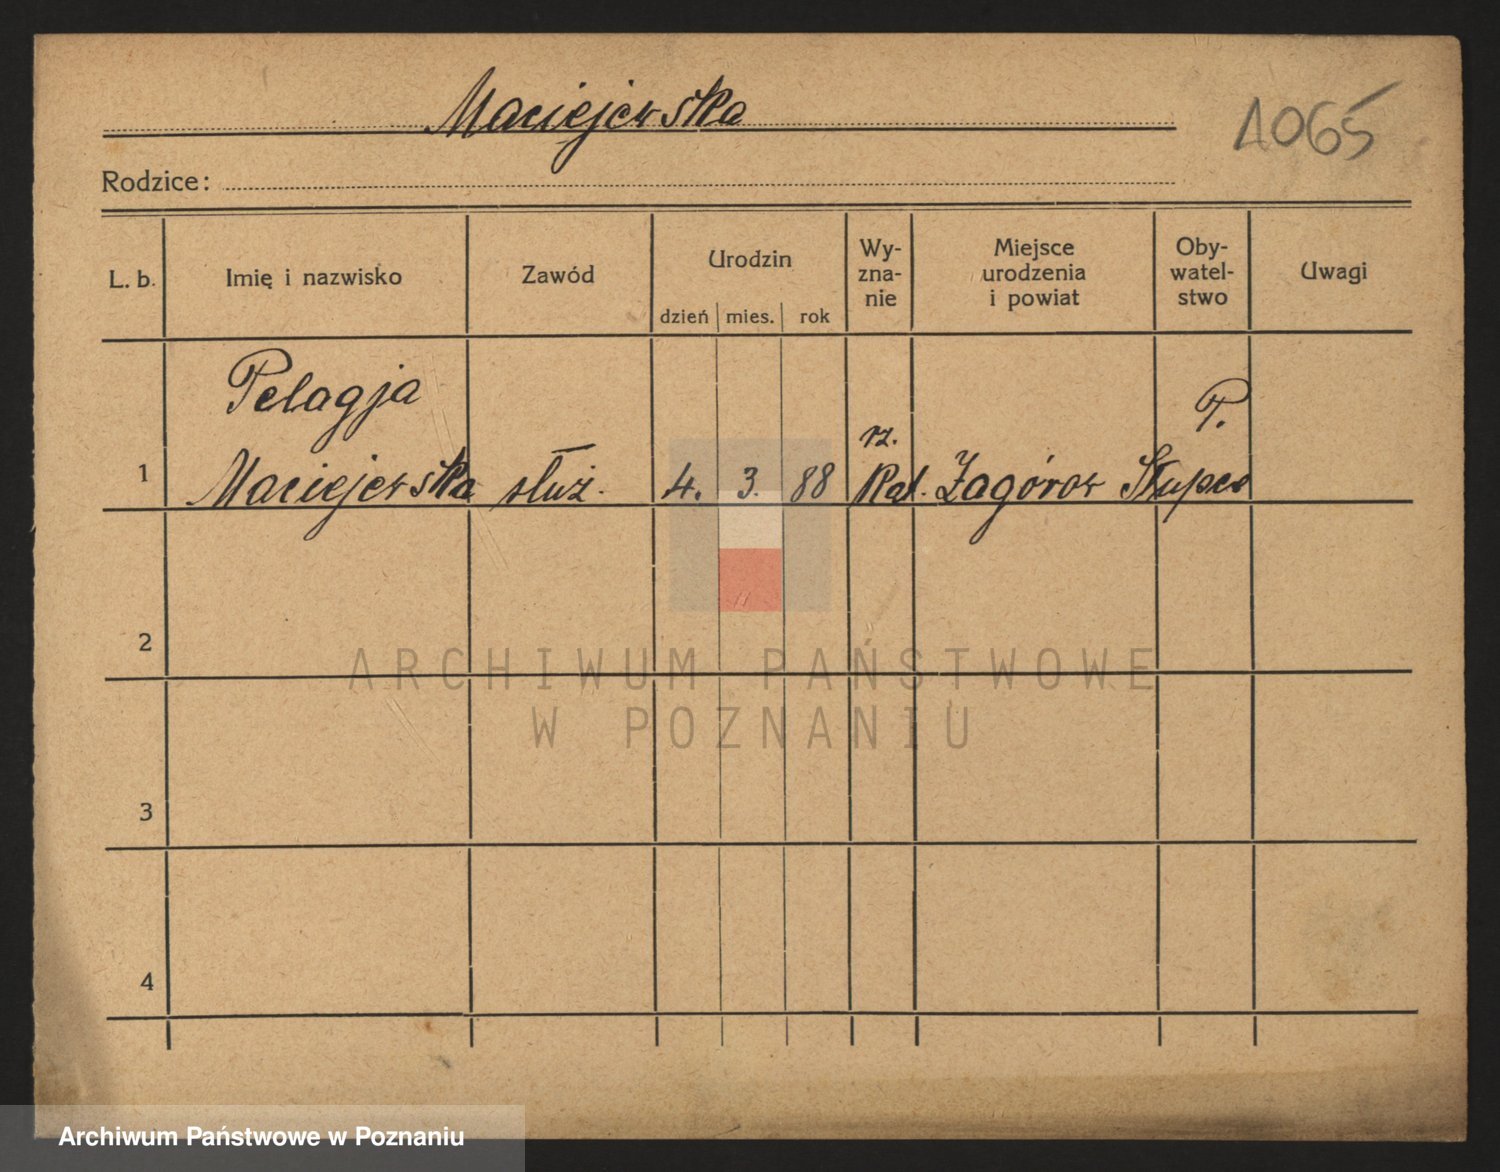 Maciejewska
1065
Rodzice:
L. b. Imię i nazwisko Zawód Urodzin dzień mies. rok Wy-zna-nie Miejsce urodzenia i powiat Oby-watel-stwo Uwagi
Pelagja P.
rz.
1 Maciejewska służ. 4. 3. 88 Kat. Zagórow Słupca
2
ARCHIWUM PAŃSTWOWE
W POZNANIU
3
4
Archiwum Państwowe w Poznaniu